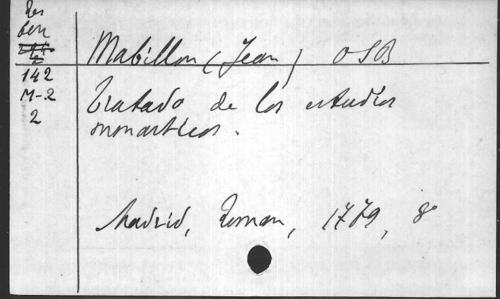 Res
Ben
142
M-2
2
Mabillon (Jean) OSB
Tratado de los estudios
monasticos.
Madrid, Roman, 1779, 8º